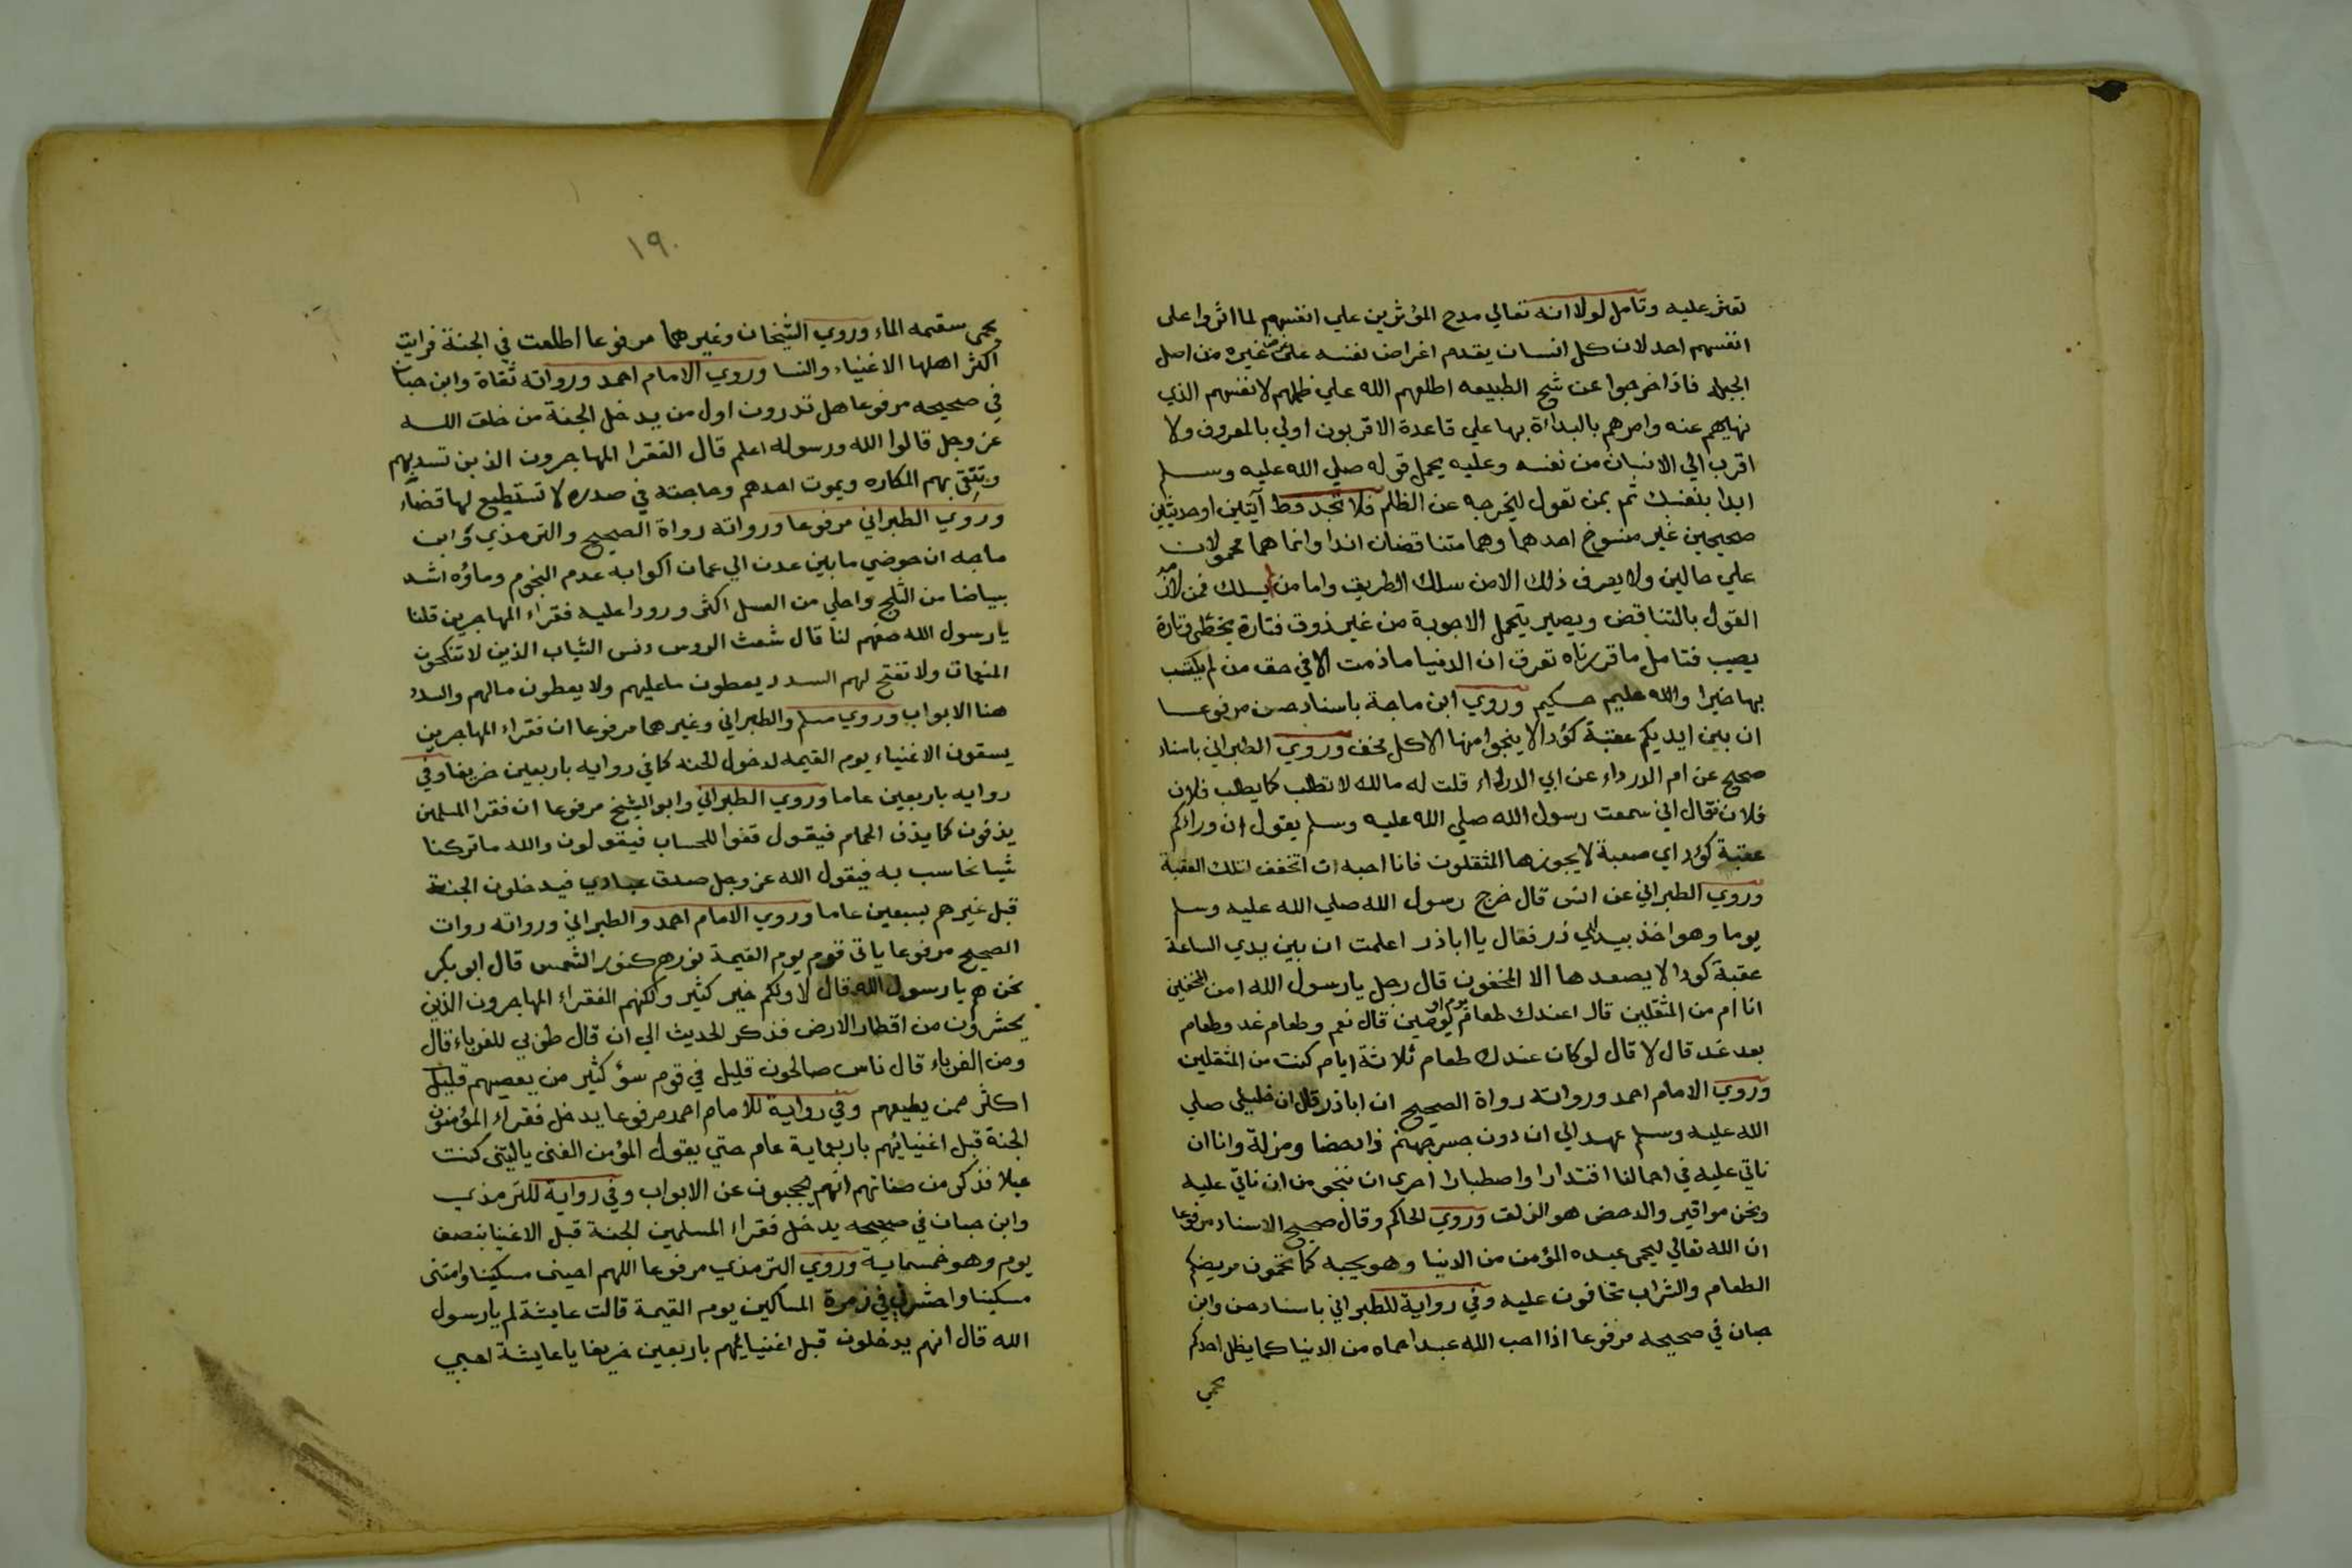 تعثر عليه وتامل لولا انه تعالي مدح المؤثرين علي انفسهم لما اثروا على
انفسهم احد لان كل انسان يقدم اغراض نفسه على غيره من اصل
الجبله فاذا خرجوا عن شح الطبيعه اطلعهم الله علي ظلمهم لانفسهم الذي
نهيهم عنه وامرهم بالبداءة بها علي قاعدة الاقربون اولي بالمعروف ولا
اقرب الي الانسان من نفسه وعليه يحمل قوله صلي الله عليه وسلم
ابدا بنفسك ثم بمن تعول ليخرجه عن الظلم فلا تجد قط آيتين او حديثين
صحيحين غير منسوخ احدهما وهما متناقضان ابدا وانما هما محمولان
علي حالين ولا يعرف ذلك الا من سلك الطريق واما من لم يسلك فمن لازمه
القول بالتناقض ويصير يتحمل الاجوبة من غير ذوق فتارة يخطي وتارة
يصيب فتامل ما قررناه تعرف ان الدنيا ما ذمت الا في حق من لم يكتسب
بها خيرا والله عليم حكيم وروي ابن ماجة باسناد حسن مرفوعا
ان بين ايديكم عقبة كؤدا لا ينجوا منها الا كل مخف وروي الطبراني باسناد
صحيح عن ام الدرداء عن ابي الدرداء قلت له مالك لا تطلب كما يطلب فلان
فلان فقال اني سمعت رسول الله صلي الله عليه وسلم يقول ان وراكم
عقبة كؤد اي صعبة لا يجوزها المثقلون فانا احب ان اتخفف لتلك العقبة
وروي الطبراني عن انس قال خرج رسول الله صلي الله عليه وسلم
يوما وهو اخذ بيد ابي ذر فقال يا اباذر اعلمت ان بين يدي الساعة
عقبة كودا لا يصعدها الا المخفون قال رجل يا رسول الله امن المخفين
انا ام من المثقلين قال اعندك طعام يوم او يومين قال نعم وطعام غد وطعام
بعد غد قال لا قال لو كان عندك طعام ثلاثة ايام كنت من المثقلين
وروي الامام احمد ورواته رواة الصحيح ان اباذر قال ان خليلي صلي
الله عليه وسلم عهد الي ان دون جسر جهنم ذا دحضا ومزلة وانا ان
ناتي عليه في احمالنا اقتدارا واصطبارا احرى ان ننجو من ان ناتي عليه
ونحن مواقير والدحض هو الزلق وروي الحاكم وقال صحيح الاسناد مرفوعا
ان الله تعالي ليحمى عبده المؤمن من الدنيا وهو يحبه كما تحمون مريضكم
الطعام والشراب تخافون عليه وفي رواية للطبراني باسناد حسن وابن
حبان في صحيحه مرفوعا اذا احب الله عبدا حماه من الدنيا كما يظل احدكم
يحمي
١٩٠
يحمى سقيمه الماء وروي الشيخان وغيرهما مرفوعا اطلعت في الجنة فرايت
اكثر اهلها الاغنياء والنسا وروي الامام احمد ورواته ثقاة وابن حبان
في صحيحه مرفوعا هل تدرون اول من يدخل الجنة من خلق الله
عز وجل قالوا الله ورسوله اعلم قال الفقرا المهاجرون الذين تسد بهم
وتتقى بهم المكاره ويموت احدهم وحاجته في صدره لا تستطيع لها قضاء
وروي الطبراني مرفوعا ورواته رواة الصحيح والترمذي وابن
ماجه ان حوضي ما بين عدن الي عمان اكوابه عدم النجوم وماؤه اشد
بياضا من الثلج واحلي من العسل اكثر ورودا عليه فقراء المهاجرين قلنا
يا رسول الله صفهم لنا قال شعث الروس دنس الثياب الذين لا تنكحون
المنعمات ولا تفتح لهم السدد يعطون ما عليهم ولا يعطون مالهم والسدد
هنا الابواب وروي مسلم والطبراني وغيرهما مرفوعا ان فقراء المهاجرين
يسقون الاغنياء يوم القيمه لدخول الجنه كما في روايه باربعين خريفا وفي
روايه باربعين عاما وروي الطبراني وابو الشيخ مرفوعا ان فقرا المسلمين
يذفون كما يذف الحمام فيقول قفوا للحساب فيقولون والله ما تركنا
شيا نحاسب به فيقول الله عز وجل صدق عبادي فيدخلون الجنة
قبل غيرهم بسبعين عاما وروي الامام احمد والطبراني ورواته روات
الصحيح مرفوعا ياتى قوم يوم القيمة نورهم كنور الشمس قال ابو بكر
نحن هم يا رسول الله قال لا ولكم خير كثير ولكنهم الفقراء المهاجرون الذين
يحشرون من اقطار الارض فذكر الحديث الي ان قال طوبي للغرباء قال
ومن الغرباء قال ناس صالحون قليل في قوم سؤ كثير من يعصيهم قليل
اكثر ممن يطيعهم وفي رواية للامام احمد مرفوعا يدخل فقراء المؤمنون
الجنة قبل اغنيائهم باربعماية عام حتي يقول المؤمن الغنى ياليتنى كنت
عيلا فذكر من صفاتهم انهم يحجبون عن الابواب وفي رواية للترمذي
وابن حبان في صحيحه يدخل فقراء المسلمين الجنة قبل الاغنيا بنصف
يوم وهو خمسماية وروي الترمذي مرفوعا اللهم احينى مسكينا وامتنى
مسكينا واحشرني في زمرة المساكين يوم القيمة قالت عايشة لم يا رسول
الله قال انهم يدخلون قبل اغنيائهم باربعين خريفا يا عايشة احبي